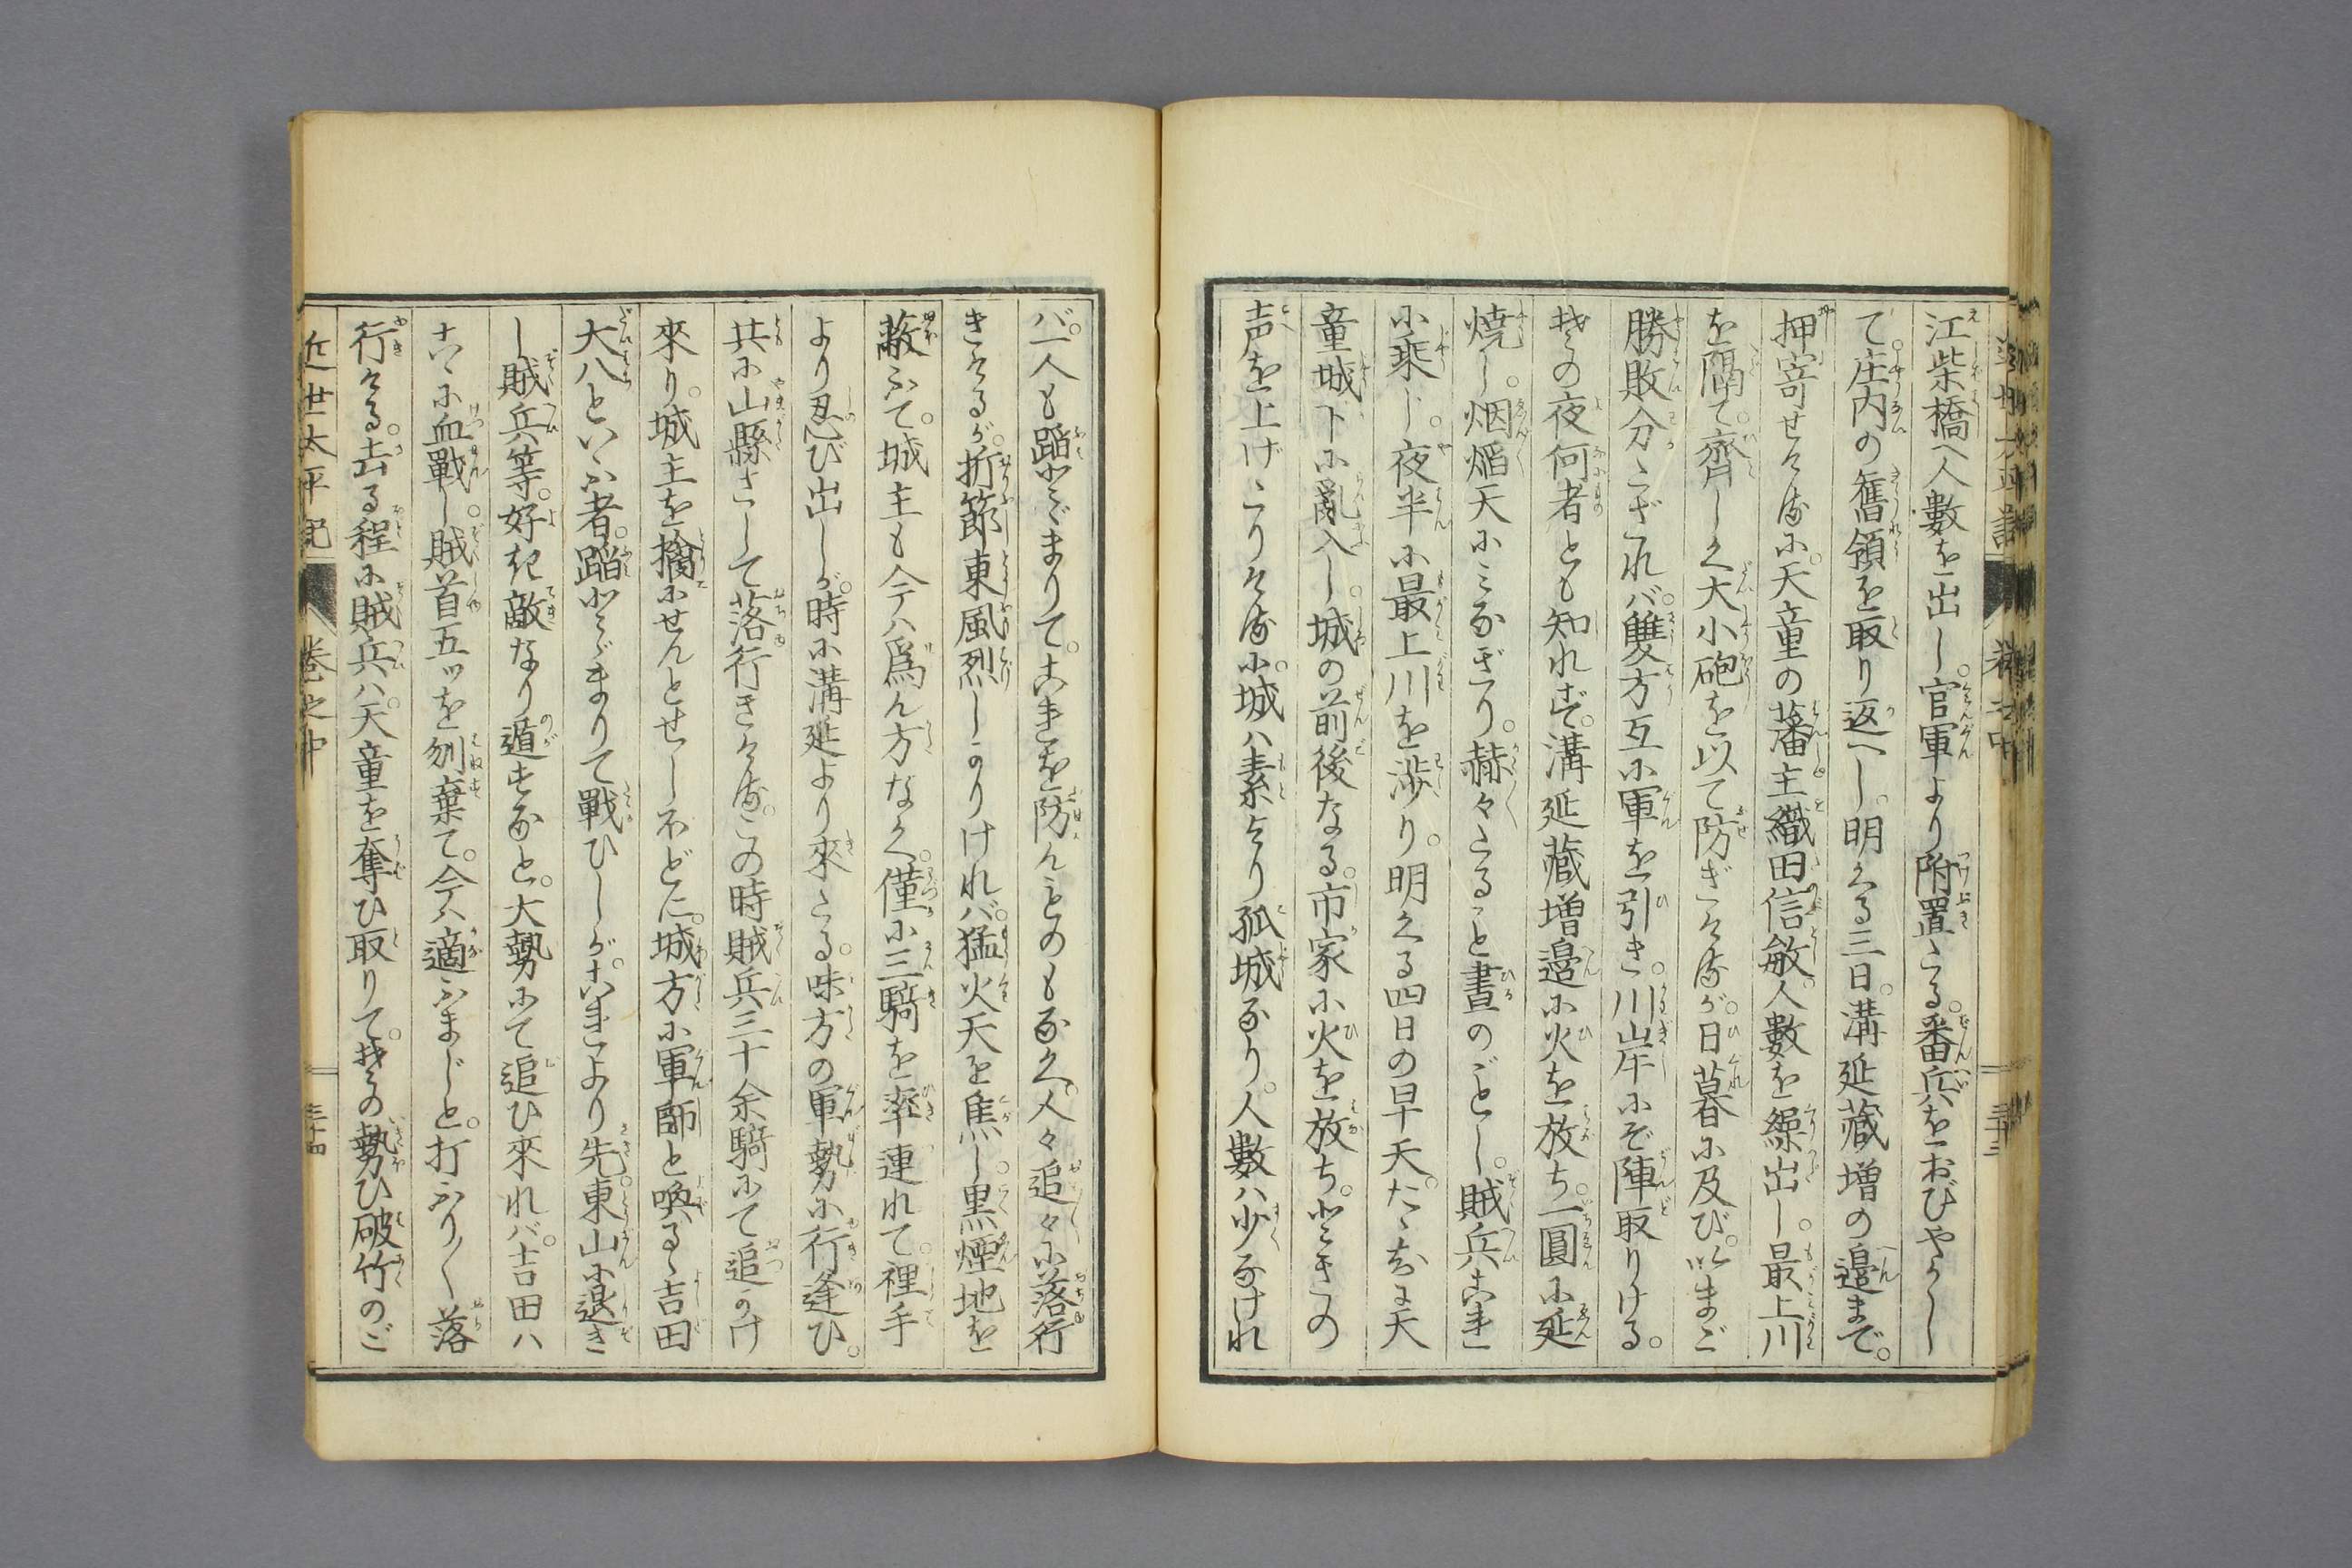 江柴橋へ人數を出し。官軍より附置たる。番兵をおびやかし
て。庄内の舊領を取り返へし。明くる三日。溝延藏増の邉まで。
押寄せける に。天童の藩主織田信敏。人數を繰出し。最上川
を隔て。齊しく大小砲を以て防ぎけるが。日暮に及び。いまだ
勝敗分たざれバ。雙方互に軍を引き。川岸にぞ陣取りける。
その夜何者とも知れず。溝延藏増邉に火を放ち。一圓に延
焼し。烟熖天にみなぎり。赫々たること晝のごとし。賊兵これ
に乘じ。夜半に最上川を渉り。明くる四日の早天。たゞちに天
童城下に亂入し。城の前後なる。市家に火を放ち。ときの
声を上げたりけるに。城ハ素より孤城なり。人數ハ少なけれ
バ。一人も蹈とゞまりて。これを防んものもなく。人々追々に落行
きけるが。折節東風烈しかりけれバ。猛火天を焦し。黒煙地を
蔽ふて。城主も今ハ爲ん方なく。僅に三騎を率連れて。裡手
より忍び出しが。時に溝延より來たる。味方の軍勢に行逢ひ。
共に山縣さして落行きける。この時賊兵三十余騎にて追かけ
來り。城主を擒にせんとせしかども。城方に軍師と喚る吉田
大八といふ者。蹈とゞまりて戰ひしが。これより先。東山に退き
し賊兵等。好き敵なり遁すなと。大勢にて追ひ來れバ。吉田ハ
こゝに血戰し。賊首五ッを刎棄て。今ハ適ふまじと。打ふり〱落
行きける。去る程に賊兵ハ。天童を奪ひ取りて。その勢ひ破竹のご
近世太平記
卷之中
三十四